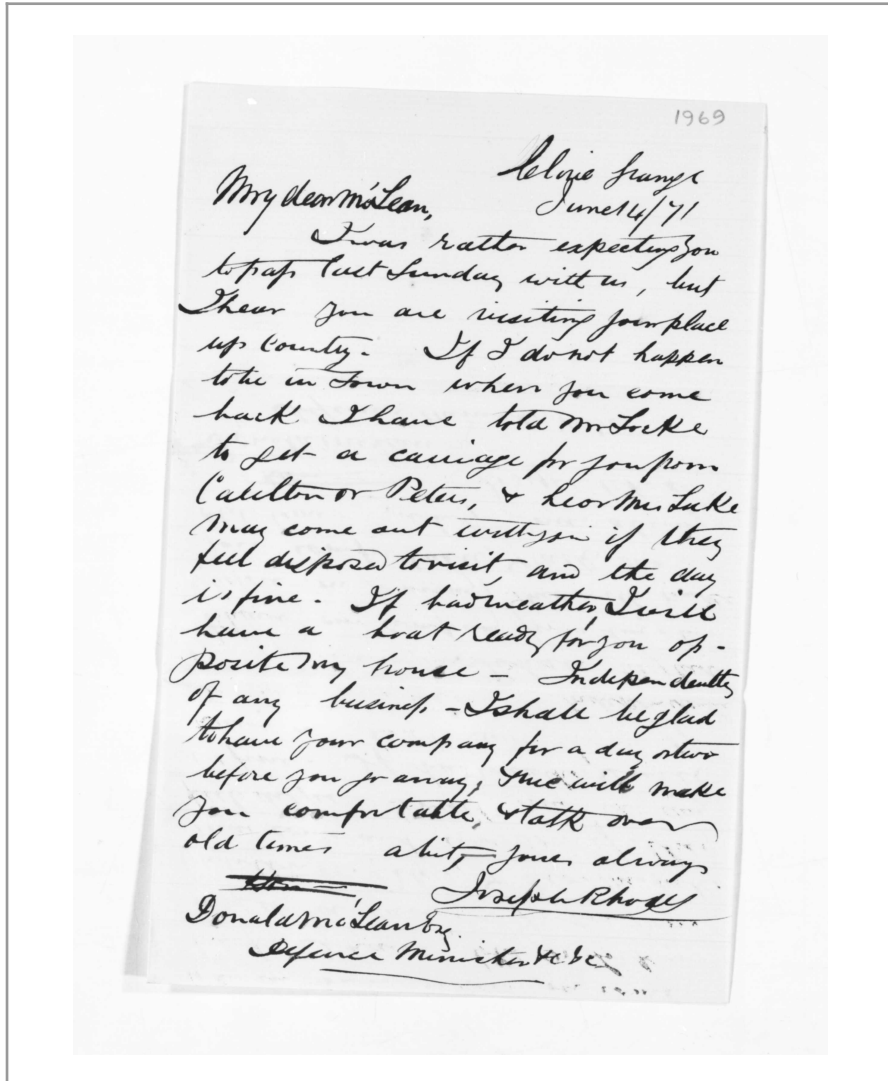 1969
Clive Grange
June 14/71
My dear McLean,
I was rather expecting you
to pass last Sunday with us, but
I hear you are visiting your place
up country. If I do not happen
to be in Town when you come
back I have told Mr Locke
to get a carriage for you from
or Peters, & he or Mrs Locke
may come out with you if they
feel disposed to visit, and the day
is fine. If bad weather, I will
have a boat ready for you op-
posite my house - Independently
of any business - I shall be glad
to have your company for a day or two
before you go away, & we will make
you comfortable, & talk over
old times a bit, yours always
Joseph Rhodes
Donald McLean Esq
Defence Minister &c &c